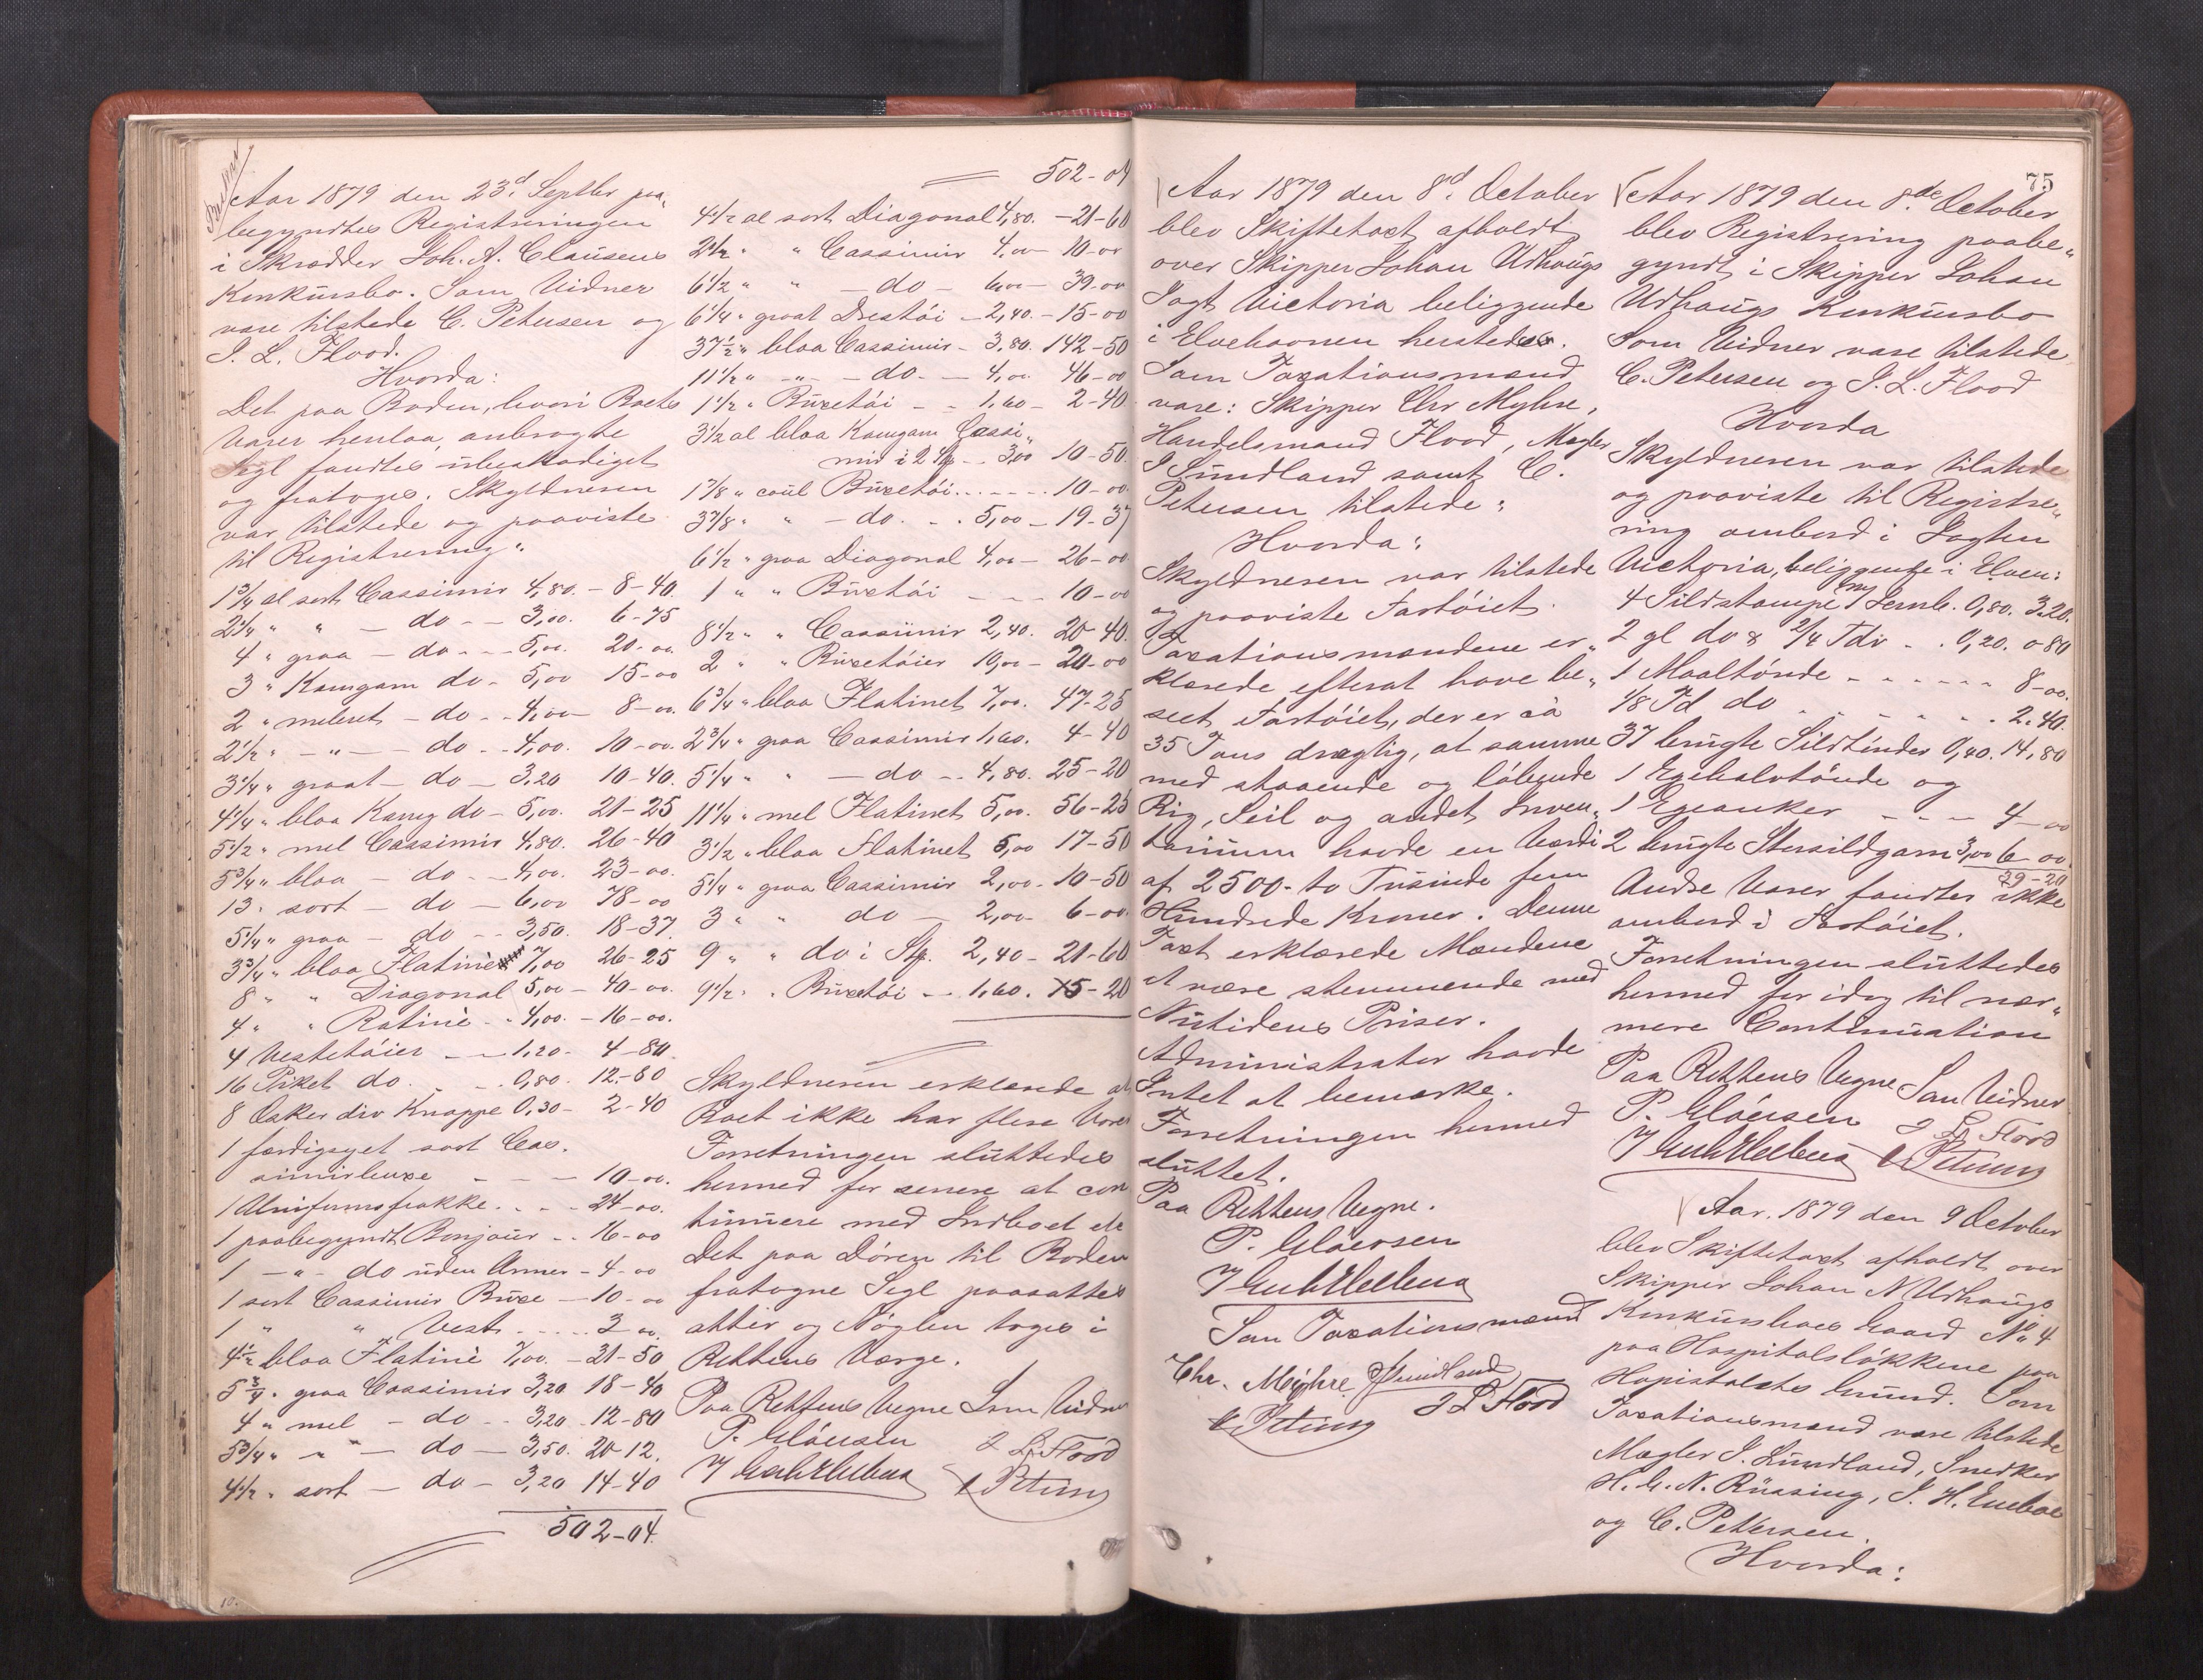 Aar 1879 den 23d Septbr paa„
begyndtes Registreringen
i Skrædder Joh. A. Clausens
Konkursbo. Som Vidner
vare tilstede C. Petersen og
J. L. Flood.
Hvorda:
Det paa Boden, hvori Boets
Varer henlaa, anbragte
Segl fandtes ubeskadiget
og fratoges. Skyldneren
var tilstede og paaviste
til Registrering:
1 3/4 al sort Cassimir 4,80. – 8-40.
2 1/4 " " – do – – 3,00. 6-75
4 " graa – do – – 5,00. 20-00.
3 " Kamgarn do – 5,00 15-00
2 " meleret – do – – 4,00 – 8-00.
2 1/2 " – " – do – – 4,00. 10-00.
3 1/4 " graat – do – 3,20 10-40.
4 1/4 " blaa Kamg do – 5,00. 21-25
5 1/2 " mel Cassimir 4,80. 26-40
5 3/4 " blaa – do – – 4,00. 23-00.
13 " sort – do – 6,00 78-00
5 1/4 " graa – do – – 3,50. 18-37.
3 3/4 " blaa Flatine 7,00 26-25
8 " " Diagonal 5,00 – 40-00.
4 " " Ratinè – 4,00. – 16-00.
4 Vestetöier – – 1,20 – 4-80.
16 Piket do. – – 0,80. 12-80
8 Æsker div Knappe 0,30 – 2-40
1 færdigsyet sort Cas.
simirbuxe – – – 10-00.
1 Uniformsfrakke. – – – 24-00.
1 paabegyndt Bonjour – – 16-00
1 – " – do uden Armer – 4-00
1 sort Cassimir Buxe – 10-00
1 " " Vest – – – – 2 00.
4 1/2 blaa Flatinè 7,00. – 31-50
5 3/4 " graa Cassimir 3,20 18-40
4 " mel – do – – 3,20 – 12-80
5 3/4 " – " – do – 3,50. 20-12.
4 1/2 " sort – do – 3,20 14-40
502-04.
502-04
4 1/2 al sort Diagonal 4,80. – 21-60
2 1/2 " " Cassimir 4,00 – 10-00
6 1/2 " " – do – 6,00 – 39-00
6 1/4 " graat Drestöi – 2,40. – 15-00
37 1/2 " blaa Cassimir – 3,80. 142-50
11 1/2 " – " – do – – 4,00. 46-00
1 1/2 " Buxetöi – – 1,60 – 2-40
3 1/2 al blaa Kamgarn Cassi„
mir i 2 Stp – – 3,00 10-50.
1 7/8 " coul Buxetöi – – – – 10-00.
3 7/8 " " – do. – . 5,00 – 19-37
6 1/2 " graa Diagonal 4,00 – 26-00
1 " " Buxetöi – – – 10-00
8 1/2 " " Cassimir 2,40. 20-40.
2 " " Buxetöier 10,00 – 20-00
6 3/4 " blaa Flatinet 7,00. 47-25
2 3/4 " graa Cassimir 1,60. 4-40
5 1/4 " " – do – – 4,80. 25-20
11 1/4 " mel Flatinet 5,00. 56-25
3 1/2 " blaa Flatinet 5,00 17-50
5 1/4 " graa Cassimir 2,00 – 10-50
3 " " do – 2,00 – 6-00
9 " " do i Stp. 2,40 – 21-60
9 1/2 " " Buxetöi – – 1,60. 15-20
Skyldneren erklærede at
Boet ikke har flere Varer
Forretningen sluttedes
hermed for senere at con
tinuere med Indboet etc
Det paa Dören til Boden
fratagne Segl paasattes
atter og Nöglen toges i
Rettens Værge.
Paa Rettens Vegne Som Vidner
P. Clausen J L. Flood
C Petersen
75
Aar 1879 den 8d. October
blev Skiftetaxt afholdt
over Skipper Johan Udhaugs
Jagt Victoria beliggende
i Elvehavnen herstedes.
Som Taxationsmænd
vare: Skipper Chr Myhre,
Handelsmand Flood, Mægler
J Sundland samt C.
Petersen tilstede:
Hvorda:
Skyldneren var tilstede
og paaviste Fartöiet.
Taxationsmændene er„
klærede efterat have be„
seet Fartöiet, der er ca
35 Tons drægtig, at samme
med staaende og löbende
Rig, Seil og andet Inven„
tarium havde en Værdi
af 2500 – to Tusinde fem
Hundrede Kroner. Denne
Taxt erklærede Mændene
at være stemmende med
Nutidens Priser.
Administrator havde
Intet at bemærke.
Forretningen hermed
sluttet.
Paa Rettens Vegne.
P. Clausen
Som Taxationsmænd
Chr. Myhre JSundland
C Petersen J L Flood
Aar 1879 den 8de October
blev Registrering paabe„
gyndt i Skipper Johan
Udhaugs Konkursbo
Som Vidner vare tilstede
C. Petersen og J. L. Flood
Hvorda
Skyldneren var tilstede
og paaviste til Registre„
ring ombord i Jagten
Victoria, beliggende i Elven:
4 Sildstampe m/ Jernb. 0,80. 3.20.
2 gl do & 2/4 Tdr – . 0,20. 0 80
1 Maaltönde – – – – – – 8-00.
1/8 Td do . . . . . . . 2.40.
37 brugte Sildtönder 0,40. 14,80
1 Egehalvtönde og
1 Egeanker – – – 4 00
2 brugte Storsildgarn 3,00 6-00.
39-20
Andre Varer fandtes ikke
ombord i Fartöiet.
Forretningen sluttedes
hermed for idag til nær„
mere Continuation
Paa Rettens Vegne Som Vidner
P. Clausen J L. Flood
C Petersen
Aar. 1879 den 9 October
blev Skiftetaxt afholdt over
Skipper Johan N Udhaugs
Konkursboes Gaard No 4
paa Hospitalslökkene paa
Hopistalets Grund. Som
Taxationsmænd vare tilstede
Mægler J. Sundland, Snedker
H. C. N. Rüssing, J. H. Eneboe
og C. Pettersen.
Hvorda: